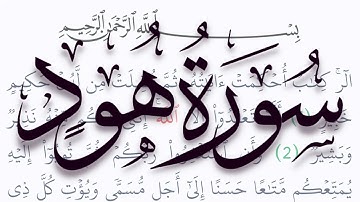 بِسْمِ اللَّهِ الرَّحْمَٰنِ الرَّحِيمِ
سُورَةُ هُودٍ
الٓر ۚ كِتَٰبٌ أُحْكِمَتْ ءَايَٰتُهُۥ ثُمَّ فُصِّلَتْ مِن لَّدُنْ حَكِيمٍ
تَعْبُدُوٓا۟ إِلَّا ٱللَّهَ إِنَّنِى لَكُم مِّنْهُ نَذِيرٌ
وَبَشِيرٌ (2) وَأَنِ ٱسْتَغْفِرُوا۟ رَبَّكُمْ ثُمَّ تُوبُوٓا۟ إِلَيْهِ
يُمَتِّعْكُم مَّتَٰعًا حَسَنًا إِلَىٰٓ أَجَلٍ مُّسَمًّى وَيُؤْتِ كُلَّ ذِى